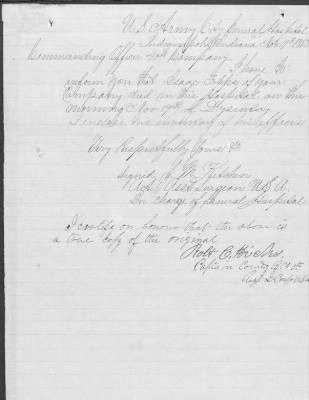 U.S. Army City General Hospital
Indianapolis Indiana Nov 19th
Commanding Officer Company
I have to
inform you that Isaac of your
Company died in this Hospital on this
morning Nov 19th of Dysentery
I enclose his inventory of his effects
Very Respectfully Yours &c
signed J M Kitchen
Act Asst Surgeon U.S.A.
In charge of General Hospital
I certify on honour that the above is
a true copy of the original
Robt C. Hicks
Captain Comdg Co